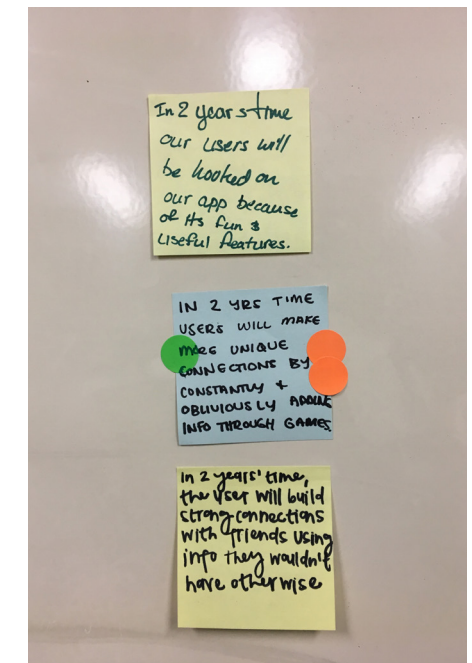 In 2 years time
our users will
be hooked on
our app because
of its fun &
useful features.
IN 2 YRS TIME
USERS WILL MAKE
MORE UNIQUE
CONNECTIONS BY
CONSTANTLY +
OBLIVIOUSLY ADDING
INFO THROUGH GAMES.
In 2 years' time,
the user will build
strong connections
with friends using
info they wouldn't
have otherwise